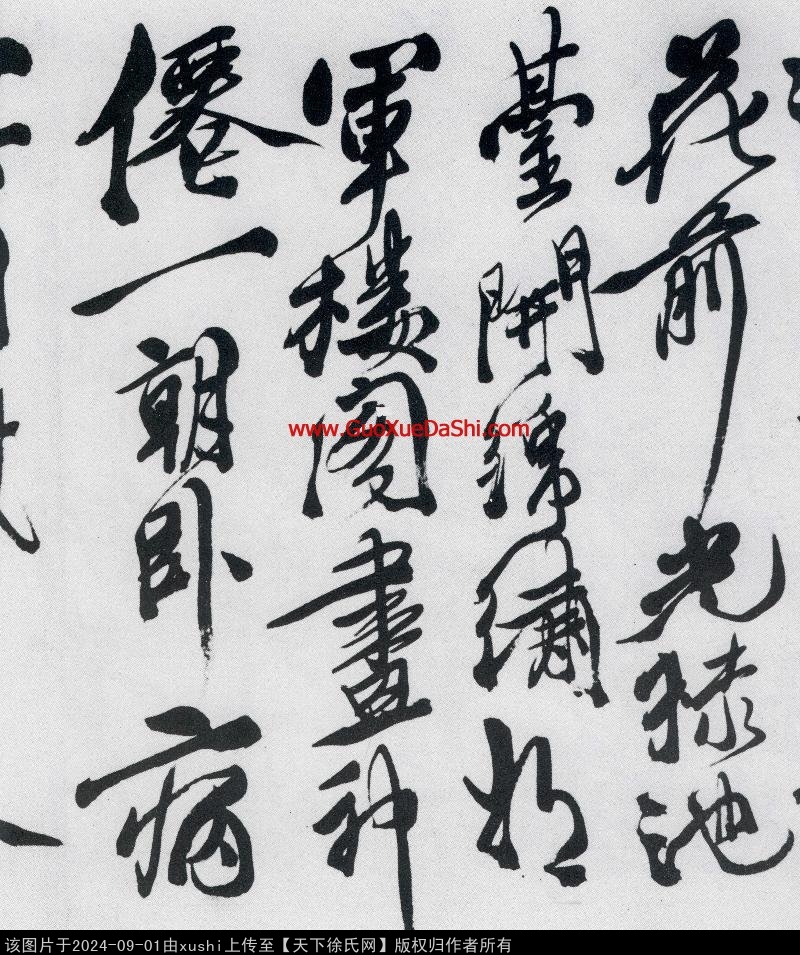 花前光祿池
臺開錦繡将
軍樓閣畫神
僊一朝卧病
www.GuoXueDaShi.com
该图片于2024-09-01由xushi上传至【天下徐氏网】版权归作者所有